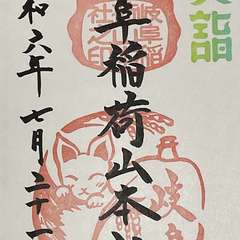 詣
阜稲荷山本
和六年七月二十一
岐阜稲
社之印